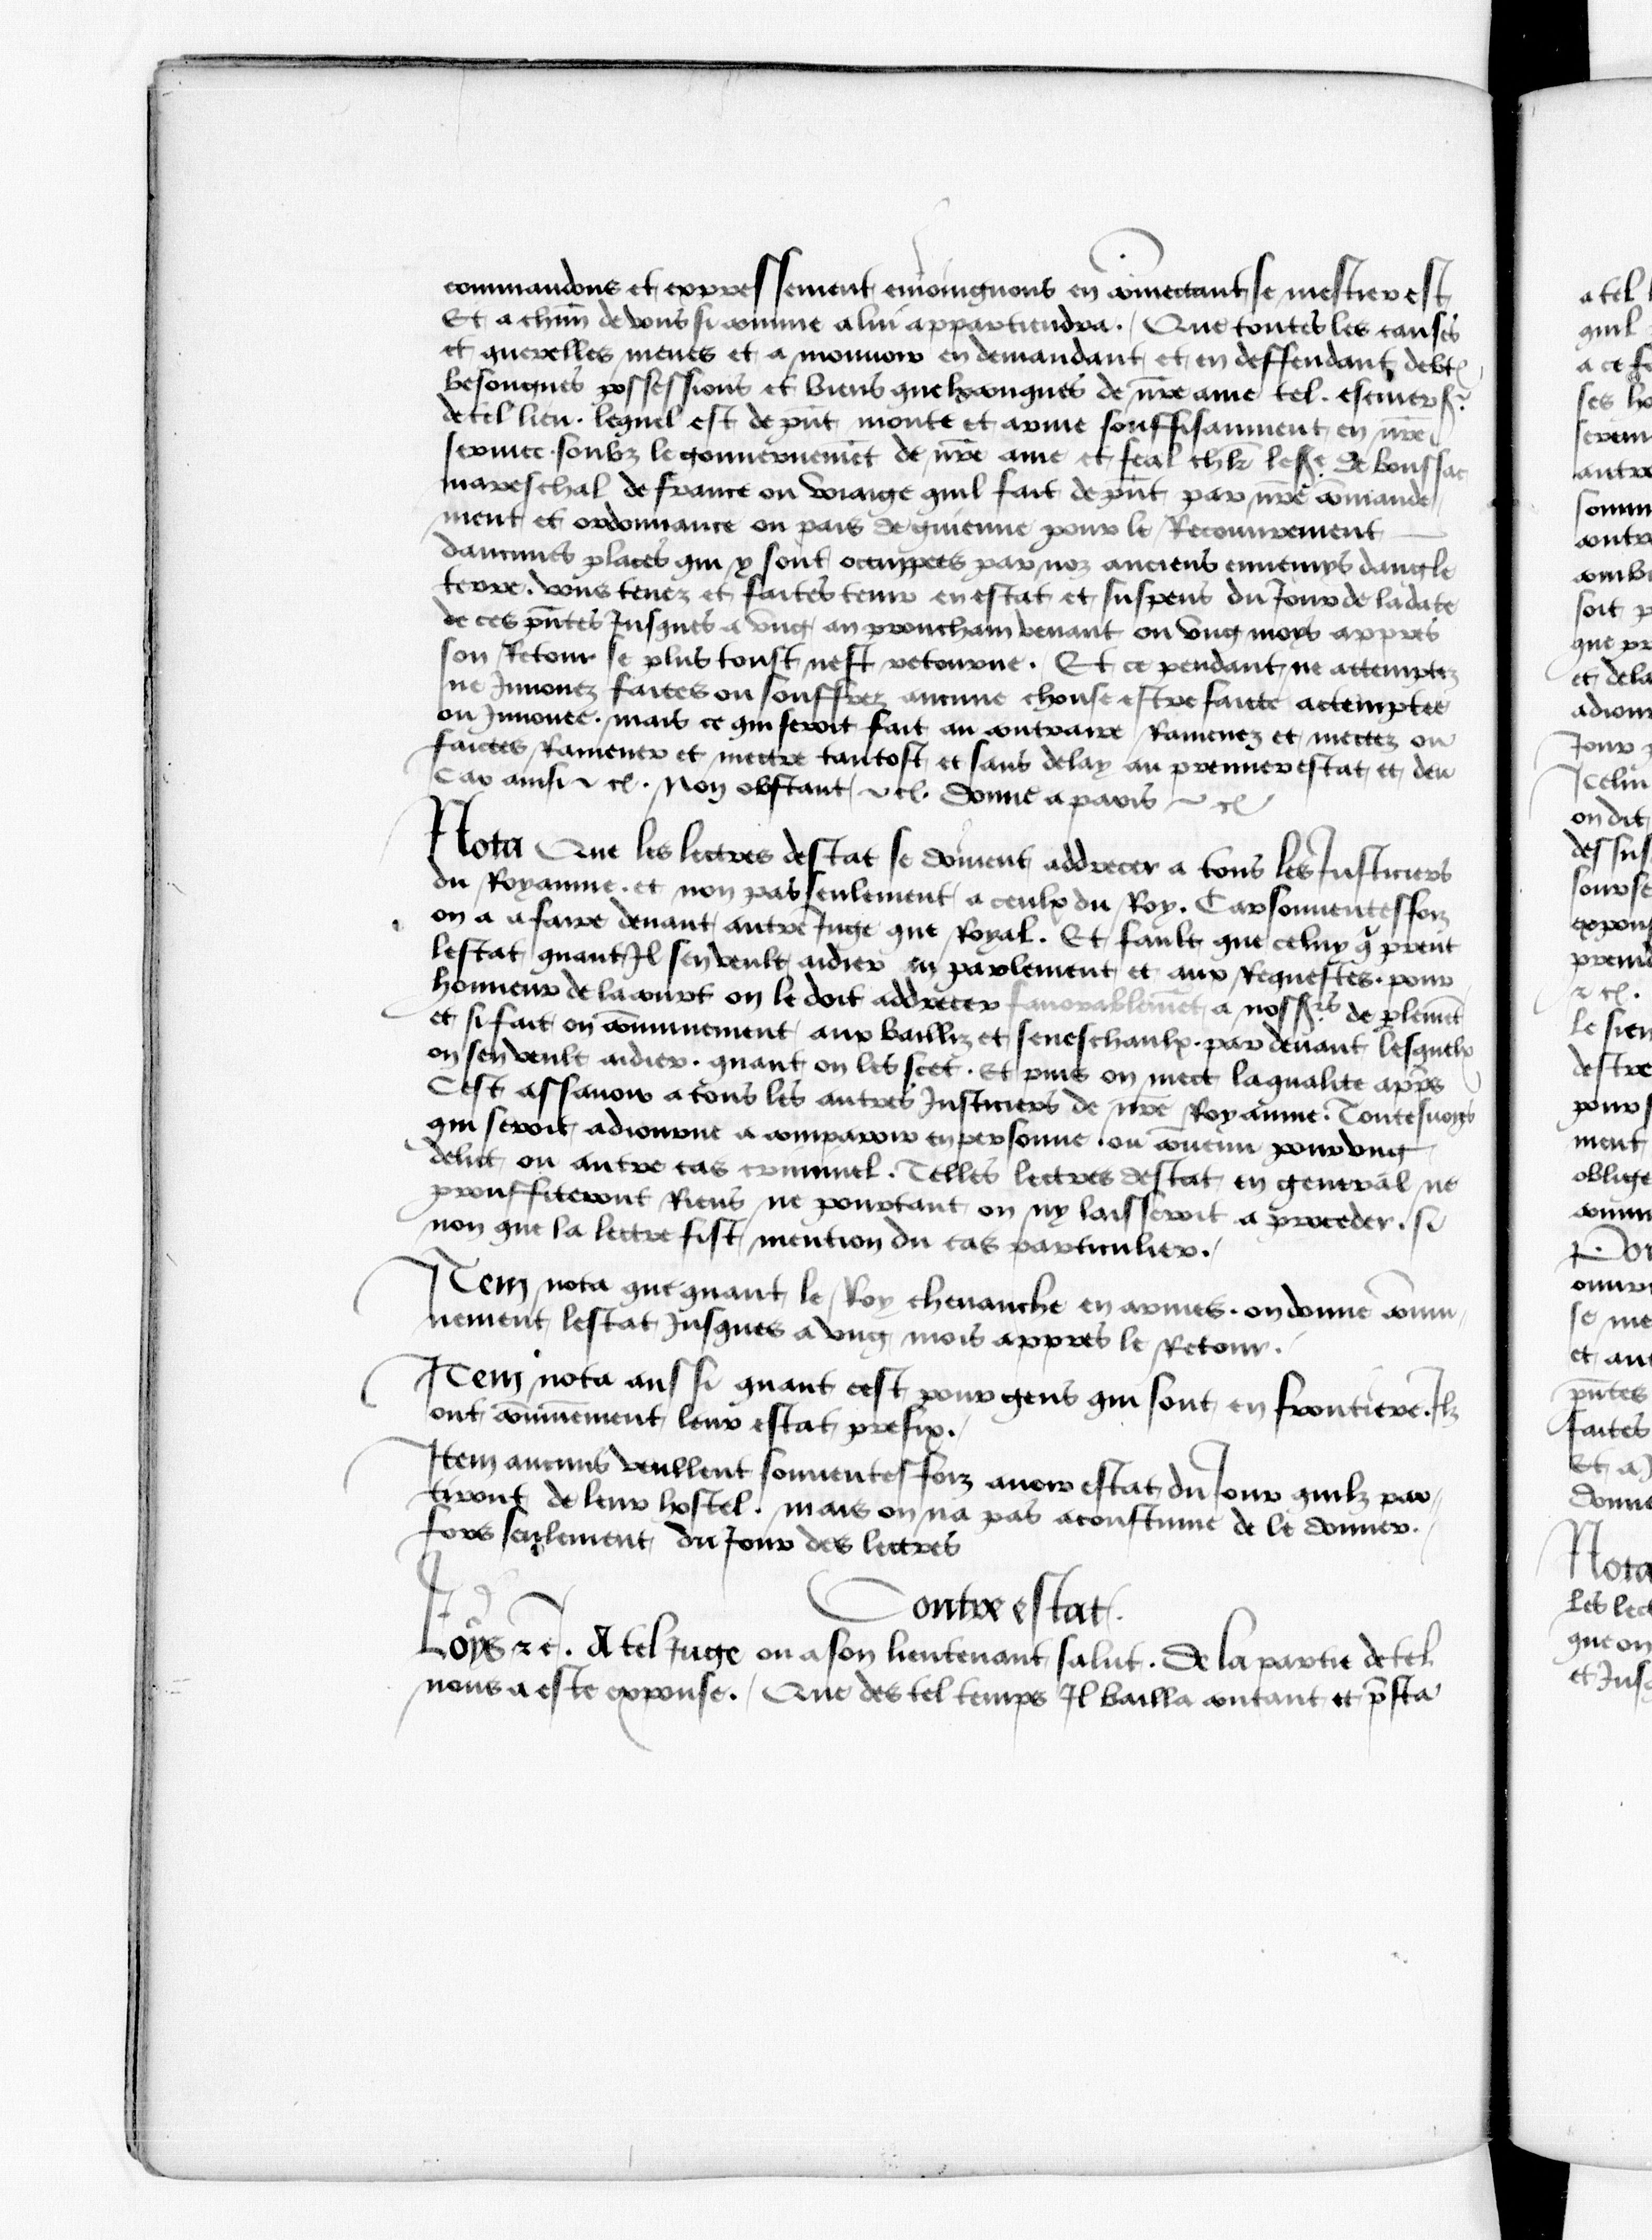 commandons et expressement enioingnons en cōmectant se mestier est
Et a chūn de vous si comme a lui appartiendra. Que toutes les causes
et querelles meues et a mouuoir en demandant et en deffendant debt
besongnes possessions et biens quelxconques de nrē ame tel. escuier sr̄
de tel lieu. lequel est de pn̄t monte et arme souffisanment en nrē
seruice soubz le gouuernemēt de nrē ame et feal chlr̄ le sr̄ de boussac
mareschal de france ou voiaige quil fait de pn̄t par nrē cōmande
ment et ordonnance ou pais de guienne pour le Recouurement
daucunes places qui y sont occuppees par noz anciens ennemys dangle
terre. vous tenez et faites tenir en estat et suspens du Jour de la date
de ces pn̄tes Jusques a vng an prouchain venant ou vng moys appres
son Retour se plus toust nest retourne. Et ce pendant ne attemptez
ne Innouez faites ou souffrez aucune chouse estre faicte actemptee
ou Innouee. mais ce qui seroit fait au contraire Ramenez et mectez ou
faictes Ramener et mectre tantost et sans delay au premier estat et deu
Car ainsi ⁊ cͤ. Non obstant ⁊ cͤ. Donne a paris ⁊ cͤ
Nota Que les lectres destat se doiuent addrecer a tous les Justiciers
du Royaume. et non pas seulement a ceulx du Roy. Car souuentesfoiz
on a a faire deuant autre Juge que Royal. Et fault que celuy q̄ prent
lestat quant Il sen veult aidier en parlement et aux Requestes. pour
honneur de la court on le doit addrecer fauorablemēt a nossrs̄ de plemēt
et si fait on cōmunement aux bailliz et seneschaulx. par deuant lesquelx
on sen veult aidier. quant on les scet. Et puis on mect la qualite apr̄s
Cest assauoir a tous les autres Justiciers de nrē Royaume. Toutesuoyes
qui seroit adiourne a comparoir en personne. ou cōuenu pour vng
delict ou autre cas criminel. Telles lectres destat en general ne
prouffiteront Riens ne pourtant on ny laisseroit a proceder. si
non que la lectre fist mention du cas particulier.
Item nota que quant le Roy cheuauche en armes. on donne cōmu
nement lestat Jusques a vng mois appres le Retour.
Item nota aussi quant cest pour gens qui sont en frontiere. Ilz
ont cōmunēment leur estat prefix.
Item aucuns veullent souuentesfoiz auoir estat du Jour quilz par
tiront de leur hostel. mais on na pas acoustume de le donner.
fors seulement du Jour des lectres
Contre estat.
Loys ⁊ cͤ. A tel Juge ou a son lieutenant salut. De la partie de tel
nous a este expouse. Que des tel temps Il bailla contant et p̄sta